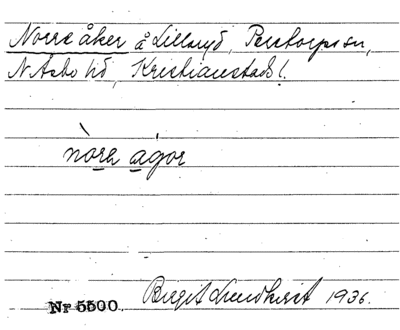 Norre åker å Lillaryd, Perstorps sn,
N Åsbo hd, Kristianstads l.
nòra ágor
Nr 5500. Birgit Lundkvist 1936.